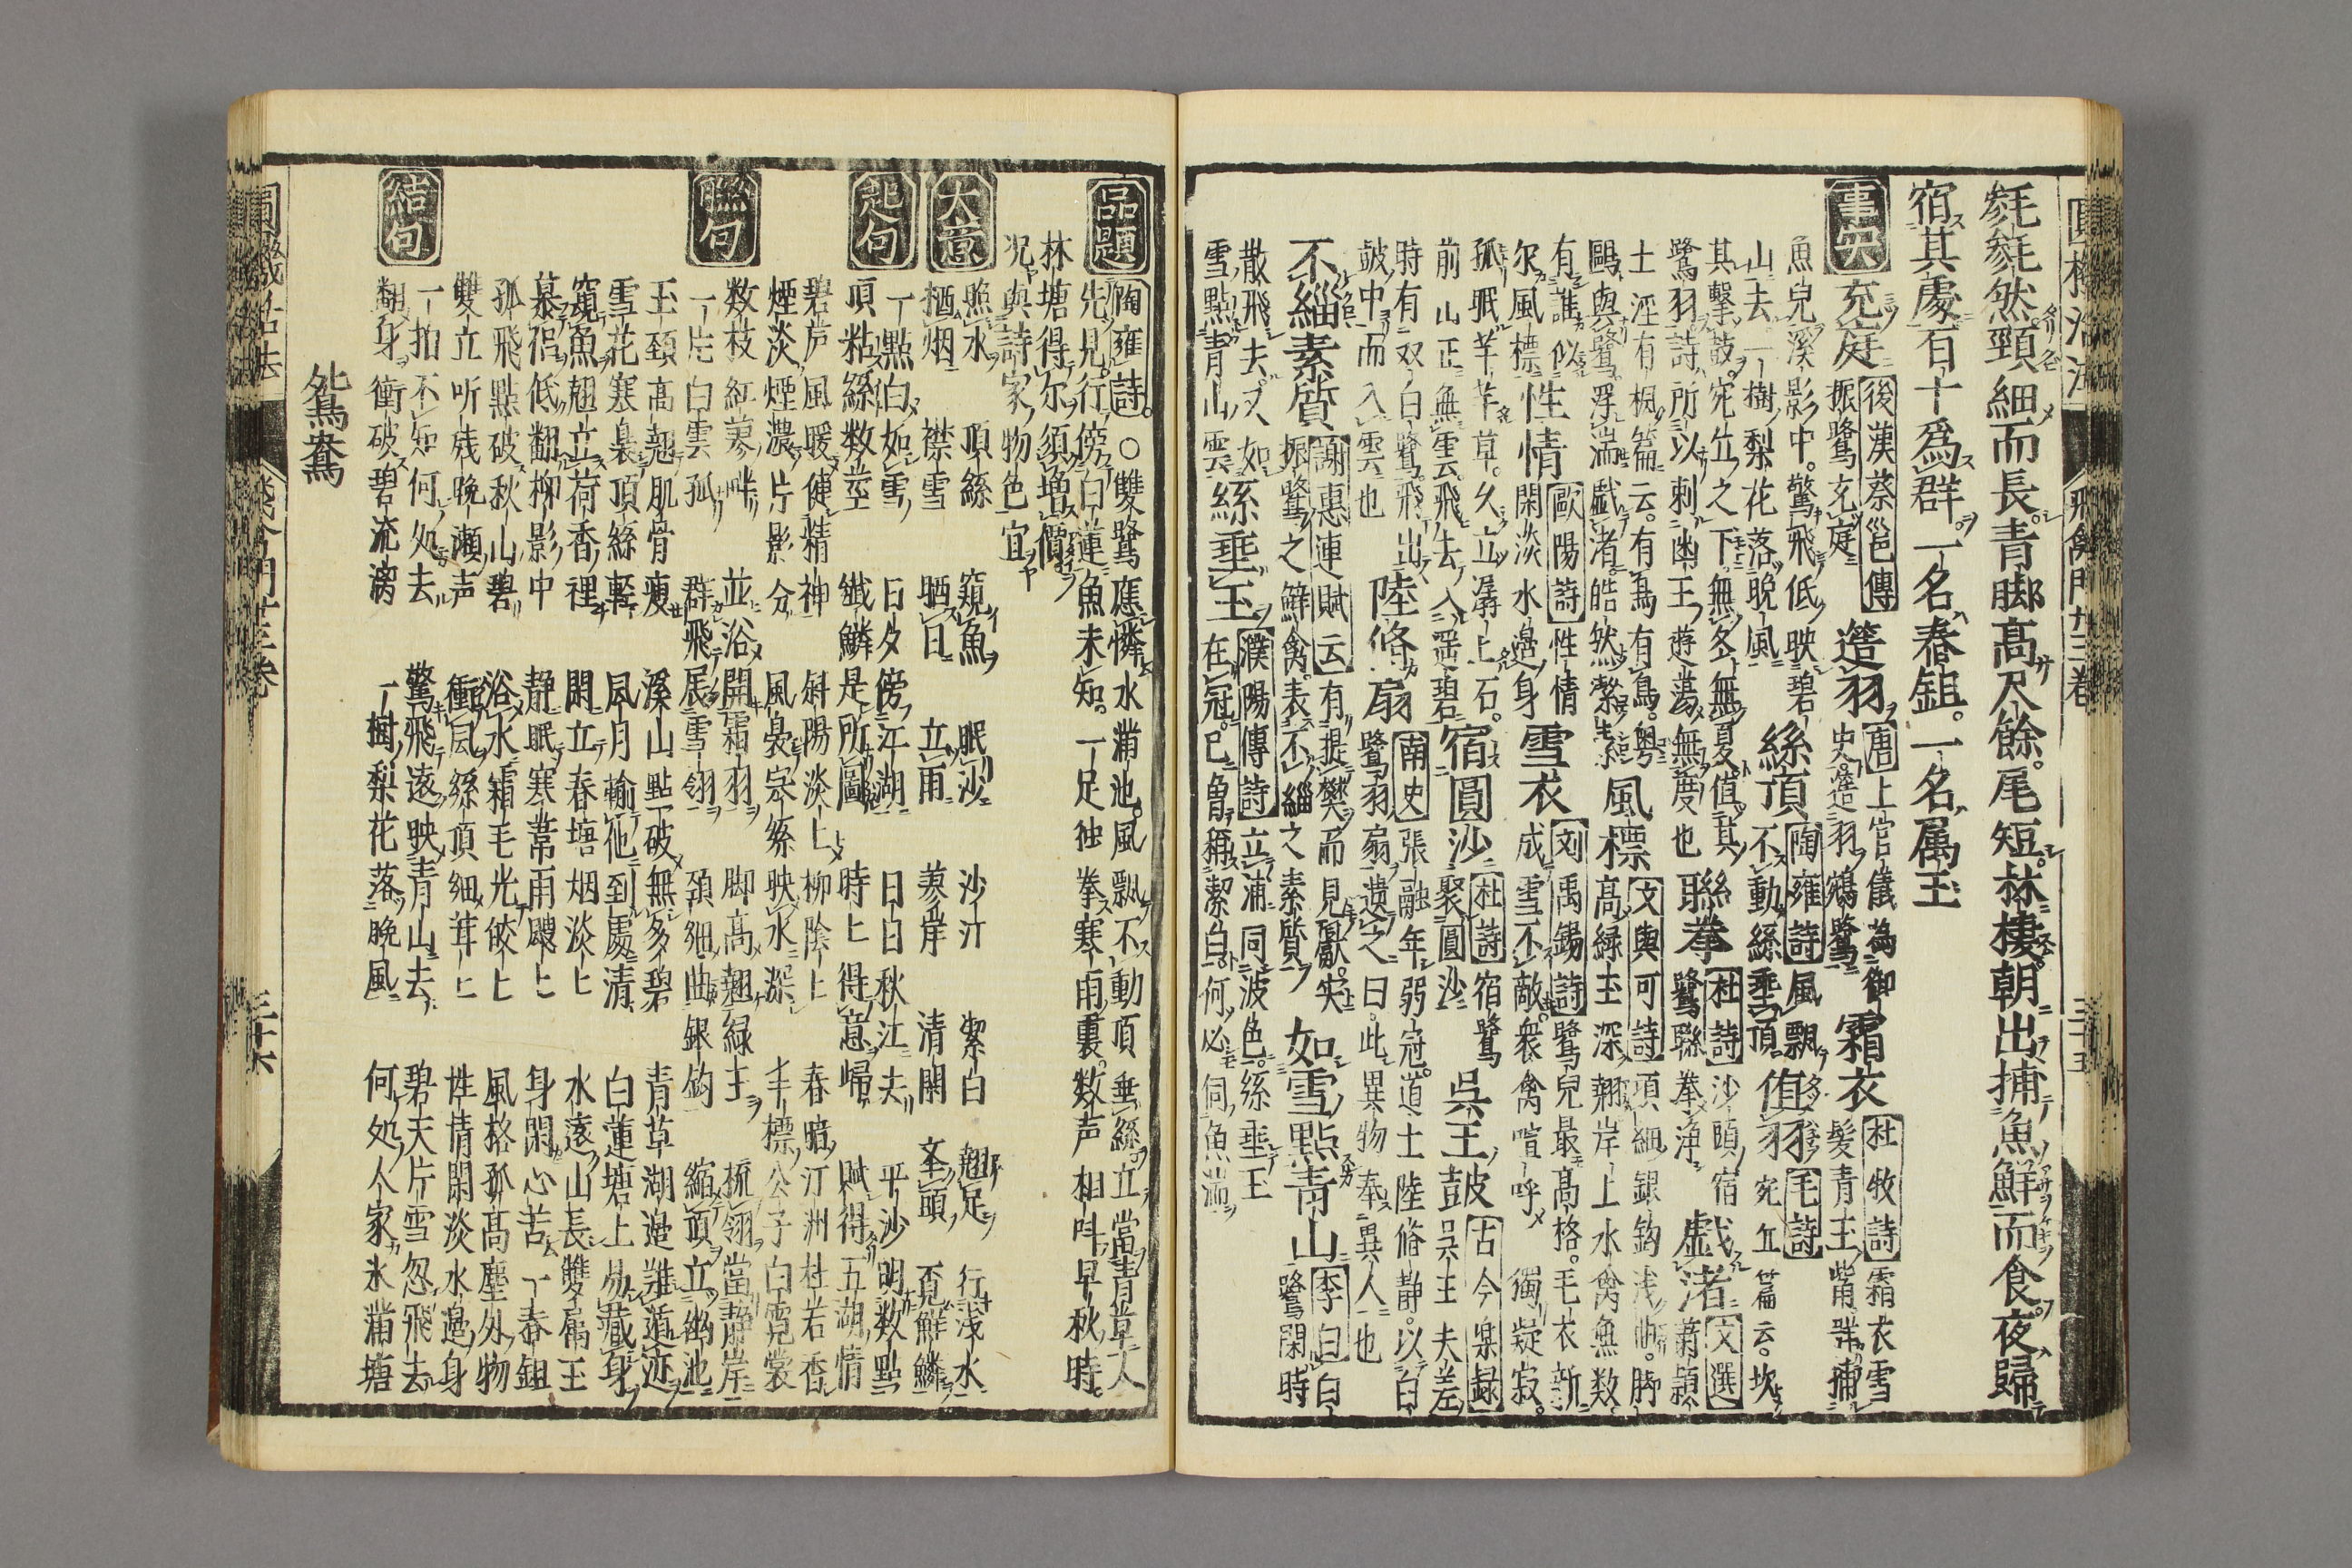 毿毿然頸細而長青脚高尺餘尾短林棲朝出捕魚鮮而食夜歸
宿其處百十爲群一名春鉏一名属玉
事実
充庭
後漢蔡邕傳
振鷺充庭
簉羽
唐上官儀為御
史簉羽鵷鷺
霜衣
杜牧詩
霜衣雪
髪青玉觜群捕
魚兒溪影中驚飛低映碧
山去一樹梨花落晚風
絲頂
陶雍詩
風飄
不動絲垂頂
値羽
毛詩
宛丘篇云坎
其擊鼓宛丘之下無冬無夏値其
鷺羽詩所以刺幽王遊蕩無度也
聯拳
杜詩
沙頭宿
鷺聯拳浄
戯渚
文選
士湮有桐篇云有為有鳥粤
鷗與鷺浮湍戯渚皓然潔
風標
文與可詩
頂細銀鈎浅曲脚
高緑玉深翹岸上水禽無数
有誰似
尓風標
性情
歐陽詩
性情
閑淡水邉身
雪衣
刘禹錫詩
鷺兒最高格毛衣新
成雪不敵衆禽喧呼獨凝寂
孤眠芊芊草久立潺上石
前山正無雲飛去入遥碧
宿圓沙
杜詩
宿鷺
聚圓沙
呉王皷
古今楽録
呉王夫差
時有双白鷺飛出
皷中而入雲也
陸脩扇
南史
張融年弱冠道士陸脩静以白
鷺羽扇遺之曰此異物奉異人也
不緇素質
謝惠連賦云
有提樊而見獻実
振鷺之鮮禽表不緇之素質
如雪點青山
李白
白
鷺閑時
散飛去又如
雪點青山雲
絲垂玉
濮陽傳詩
立浦同波色絲垂玉
在冠已魯稱潔白何必伺魚湍
品題
陶雍詩
○雙鷺應憐水滿池風飄不動頂垂絲立當青草人
先見行傍白蓮魚未知一足独拳寒雨裏数声相叫早秋時
林塘得尓須増價
况與詩家物色宜
大意
照水 頂絲 窺魚 眠沙 沙汀 潔白 翹足 行浅水
栖烟 襟雪 晒日 立雨 蓼岸 清閑 ... 覓鮮鱗
起句
一點白如雪 日夕傍江湖 日白秋江夫 平沙明数點
頂粘絲数莖 纎鱗是所圖 時上得意歸 賦得五湖情
碧芦風暖健精神 斜陽淡上柳陰上 春暗汀洲杜若香
煙淡煙濃片影分 風裊宗絲映水深 丰標公子白霓裳
聯句
数枝紅蓼畔 並浴開霜羽 脚高翹緑玉 梳翎當静岸
一片白雲孤 群飛展雪翎 頚細曲銀鈎 縮頂立幽池
玉頚高翹肌骨痩 溪山點破無多碧 青草湖邉難遁迹
雪花寒裊頂絲輕 風月輸他到處清 白蓮塘上易藏身
窺魚翹立荷香裡 閑立春塘烟淡上 水遠山長雙属玉
慕侣低翻柳影中 静眠寒葦雨颼上 身閑心苦一春鉏
孤飛點破秋山碧 浴水霜毛光皎上 風格孤高塵外物
雙立听残晚瀬声 衝風絲頂細茸上 性情閑淡水邉身
結句
一拍不知何処去 驚飛遠映青山去 碧天片雪忽飛去
翻身衝破碧流漓 一樹梨花落晚風 何処人家氷滿塘
鴛鴦
飛禽門廿三卷
三十五
三十六